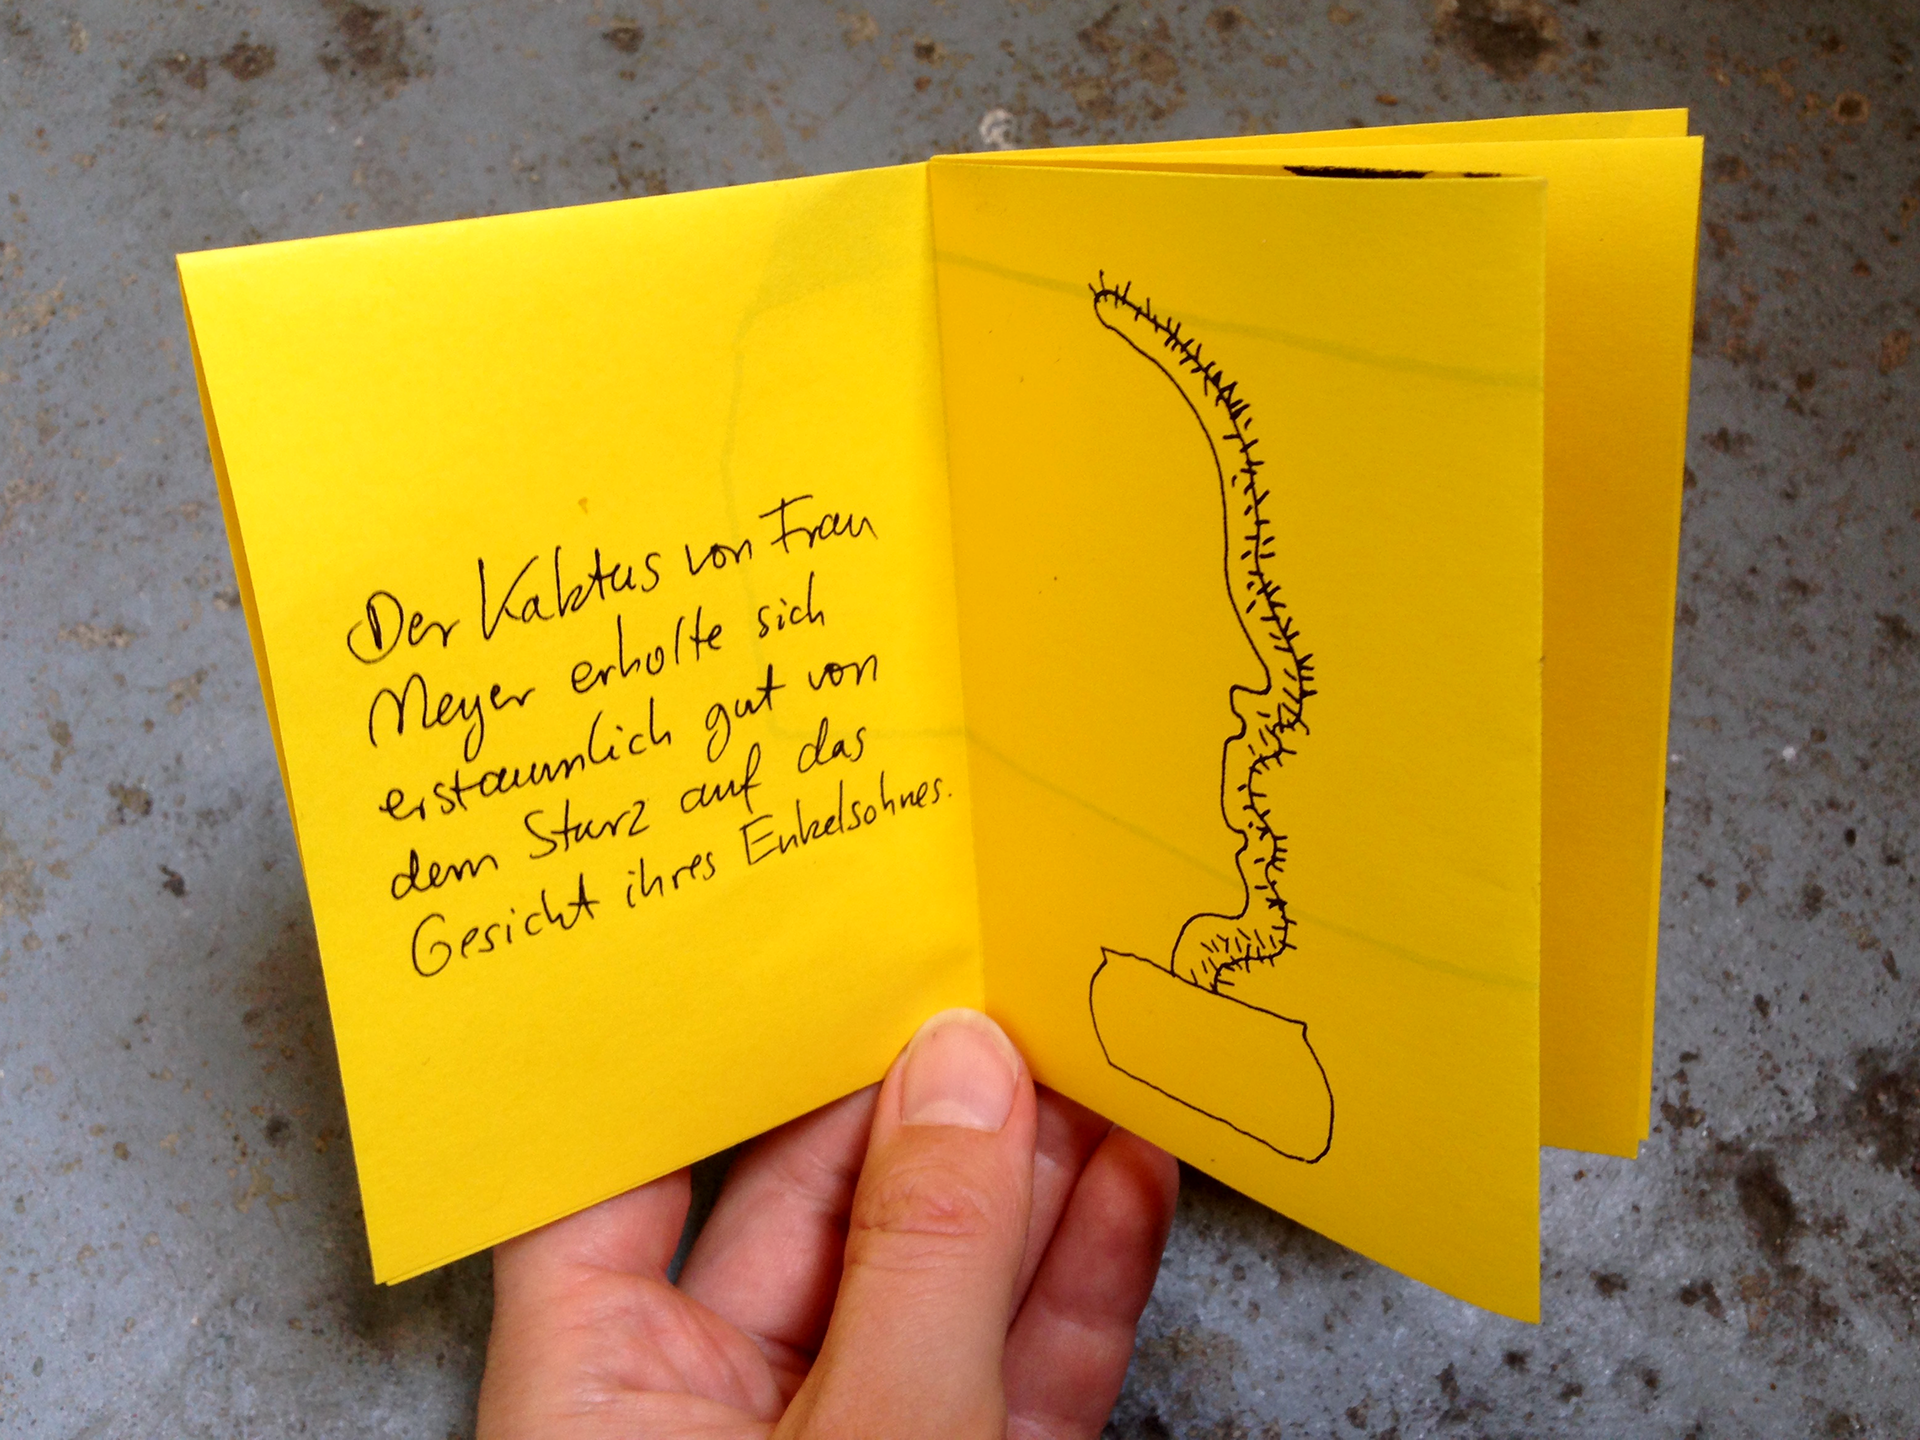 Der Kaktus von Frau
Meyer erholte sich
erstaunlich gut von
dem Sturz auf das
Gesicht ihres Enkelsohnes.